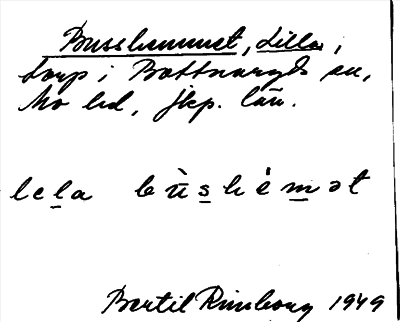 Busshemmet, Lilla,
torp i Bottnaryds sn,
Mo hd, Jkp. län.
lela bùshémət
Bertil Rimborg 1949